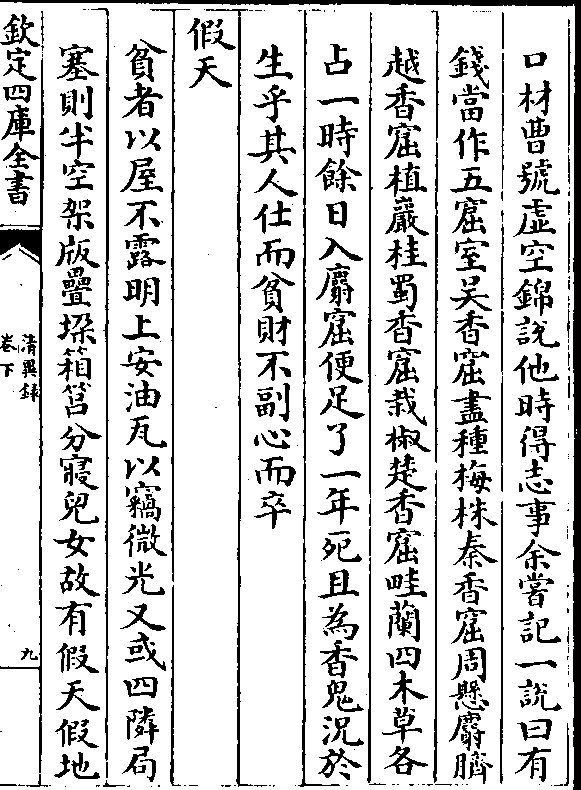 口材曹號虛空錦說他時得志事余嘗記一說曰有
錢當作五窟室吴香窟盡種梅株秦香窟周懸麝臍
越香窟植巖桂蜀香窟栽椒楚香窟畦蘭四木草各
占一時餘日入麝窟便足了一年死且為香鬼況於
生乎其人仕而貧財不副心而卒
假天
貧者以屋不露明上安油瓦以竊微光又或四隣局
塞則半空架版疊垜箱筥分寢兒女故有假天假地
欽定四庫全書
清異錄
卷下
九